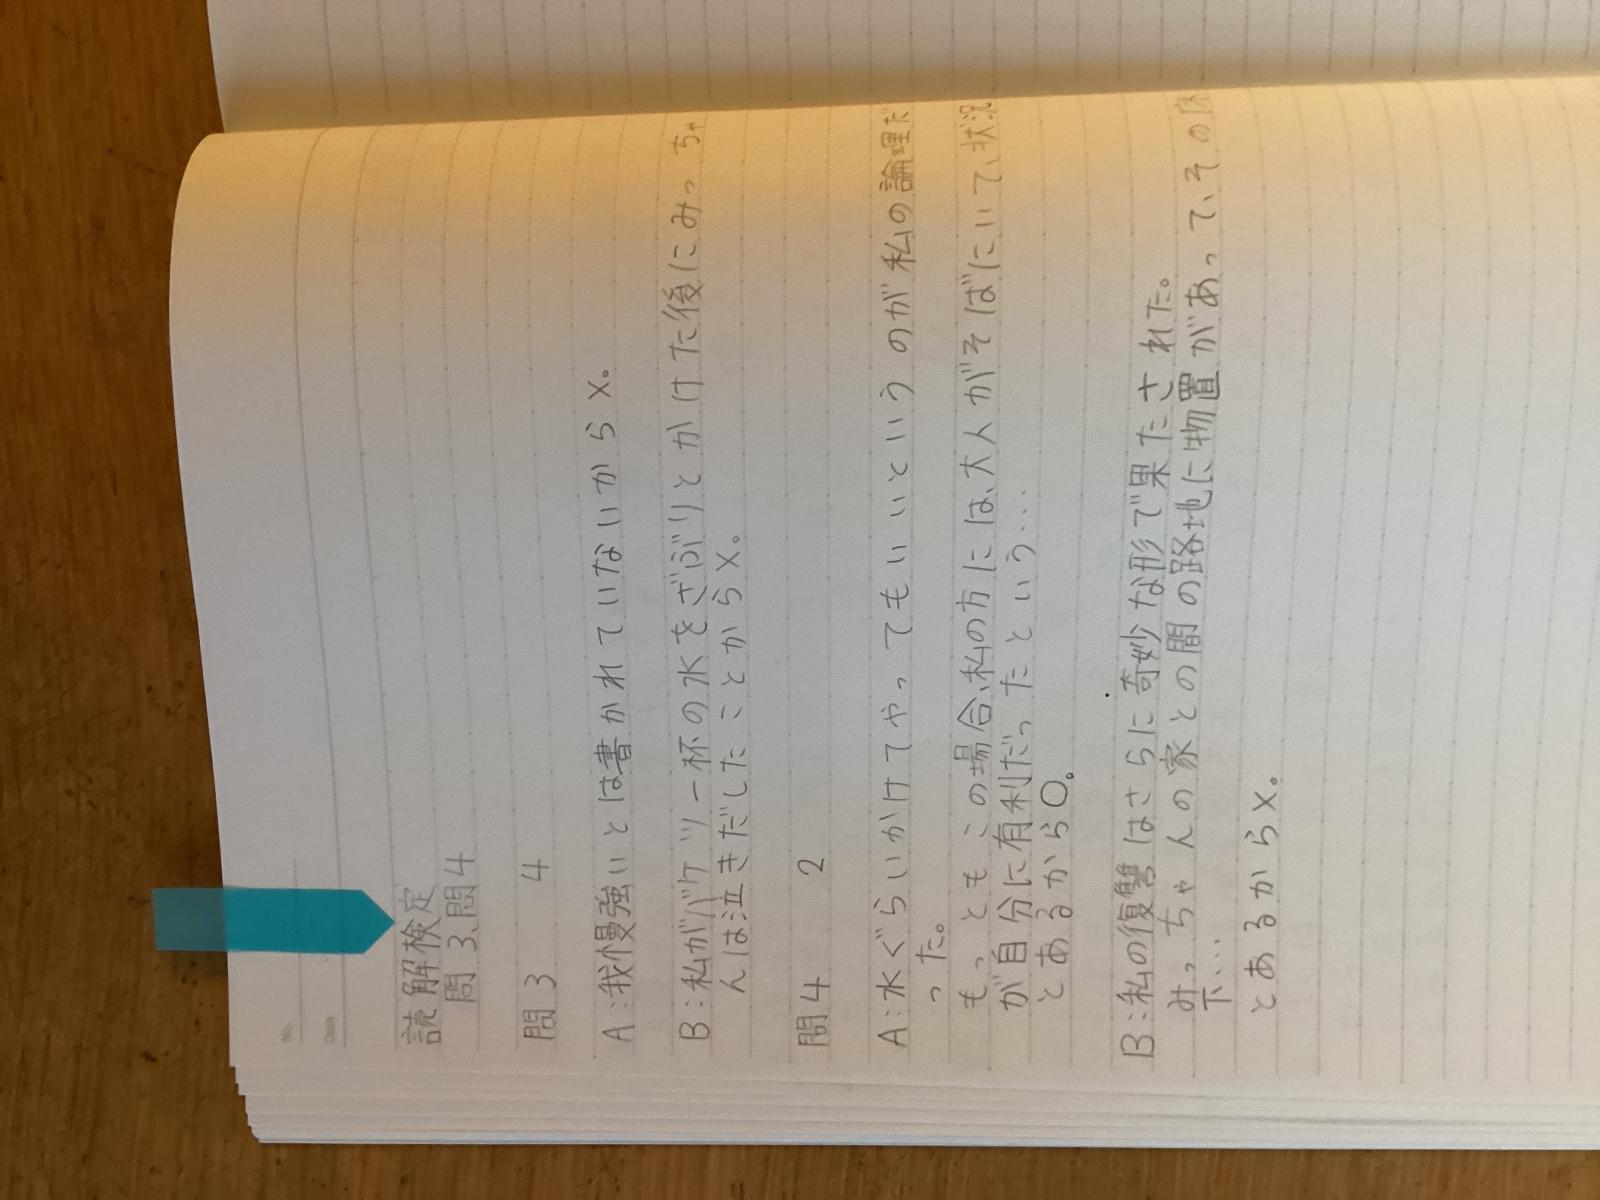 No.
Date
読解検定
問3、問4
問3 4
A:我慢強いとは書かれていないから×。
B:私がバケツ一杯の水をざぶりとかけた後にみっちゃ
んは泣きだしたことから×。
問4 2
A:水ぐらいかけてやってもいいというのが私の論理だ
った。
もっとも、この場合、私の方には、大人がそばにいて、状況
が自分に有利だったという…
とあるから〇。
B:私の復讐はさらに奇妙な形で果たされた。
みっちゃんの家との間の路地に物置があって、その床
下…
とあるから×。